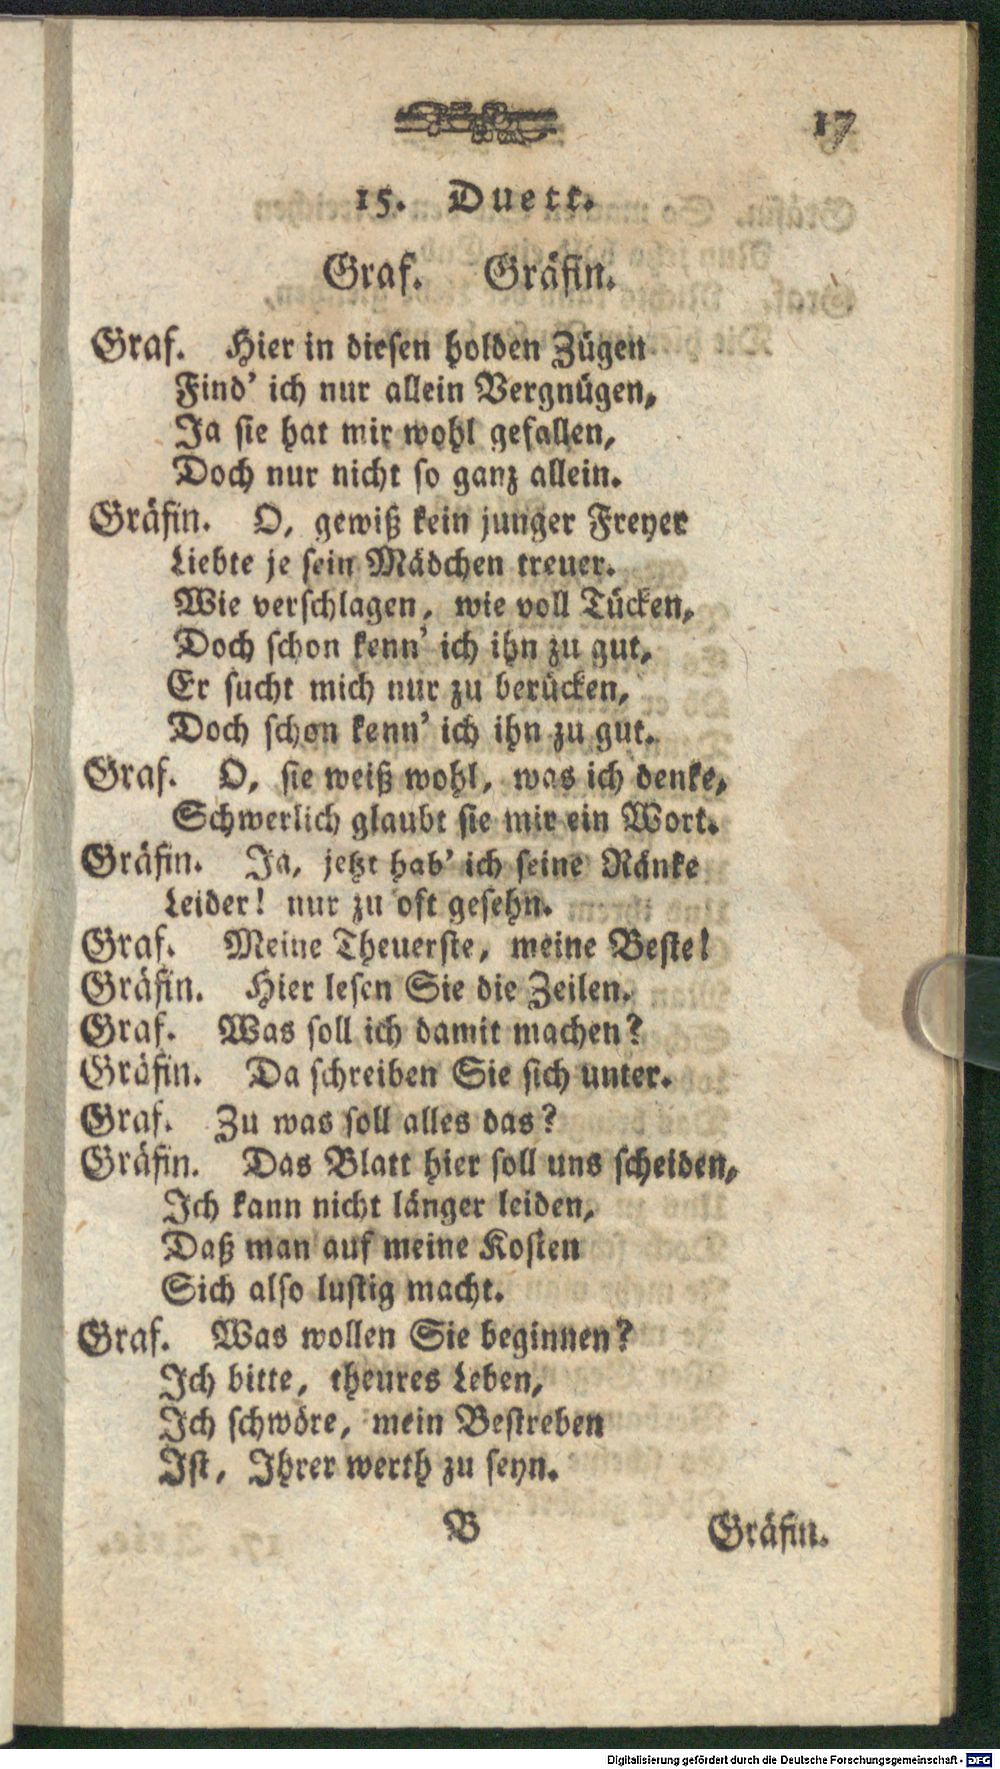 17
15. Duett.
Graf. Gräfin.
Graf. Hier in diesen holden Zügen
Find' ich nur allein Vergnügen,
Ja sie hat mir wohl gefallen,
Doch nur nicht so ganz allein.
Gräfin. O, gewiß kein junger Freyer
Liebte je sein Mädchen treuer.
Wie verschlagen, wie voll Tücken,
Doch schon kenn' ich ihn zu gut,
Er sucht mich nur zu berücken,
Doch schon kenn' ich ihn zu gut.
Graf. O, sie weiß wohl, was ich denke,
Schwerlich glaubt sie mir ein Wort.
Gräfin. Ja, jetzt hab' ich seine Ränke
Leider! nur zu oft gesehn.
Graf. Meine Theuerste, meine Beste!
Gräfin. Hier lesen Sie die Zeilen.
Graf. Was soll ich damit machen?
Gräfin. Da schreiben Sie sich unter.
Graf. Zu was soll alles das?
Gräfin. Das Blatt hier soll uns scheiden,
Ich kann nicht länger leiden,
Daß man auf meine Kosten
Sich also lustig macht.
Graf. Was wollen Sie beginnen?
Ich bitte, theures Leben,
Ich schwöre, mein Bestreben
Ist, Ihrer werth zu seyn.
B Gräfin.
Digitalisierung gefördert durch die Deutsche Forschungsgemeinschaft - DFG